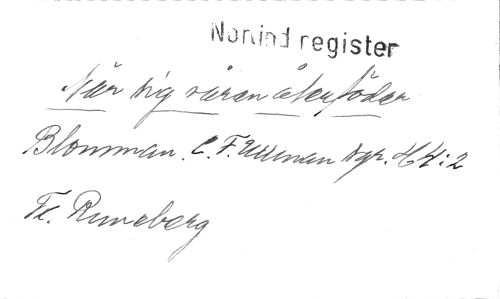 Nomind register
När sig våren återföder
Blomman. C. F. Ullman hgr. H 4:2
Fr. Runeberg